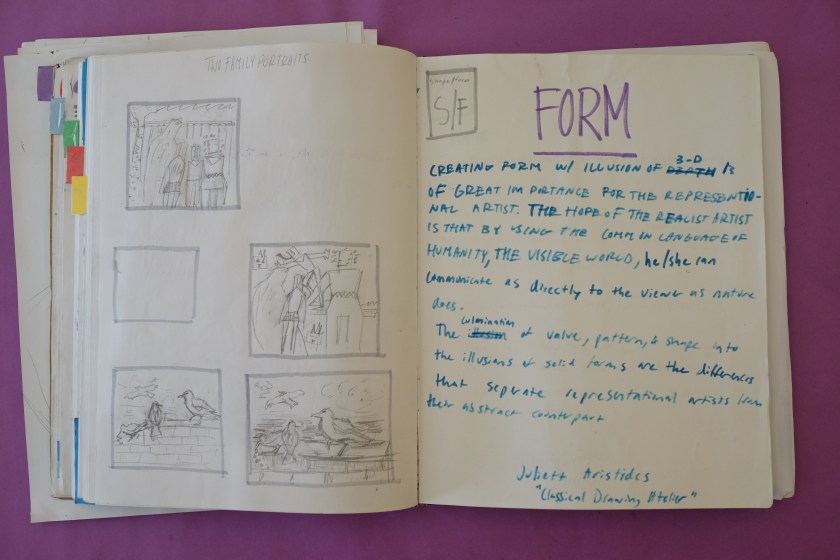 TWO FAMILY PORTRAITS
S/F
FORM
CREATING FORM W/ ILLUSION OF 3-D DEPTH IS
OF GREAT IMPORTANCE FOR THE REPRESENTIO-
NAL ARTIST. THE HOPE OF THE REALIST ARTIST
IS THAT BY USING THE COMMIN LANGUAGE OF
HUMANITY, THE VISIBLE WORLD, he/she can
communicate as directly to the viewer as nature
does.
The culmination of value, pattern, & shape into
the illusions of solid forms are the differences
that seperate representational artists from
their abstract counterpart
Juliett Aristides
"Classical Drawing Atelier"